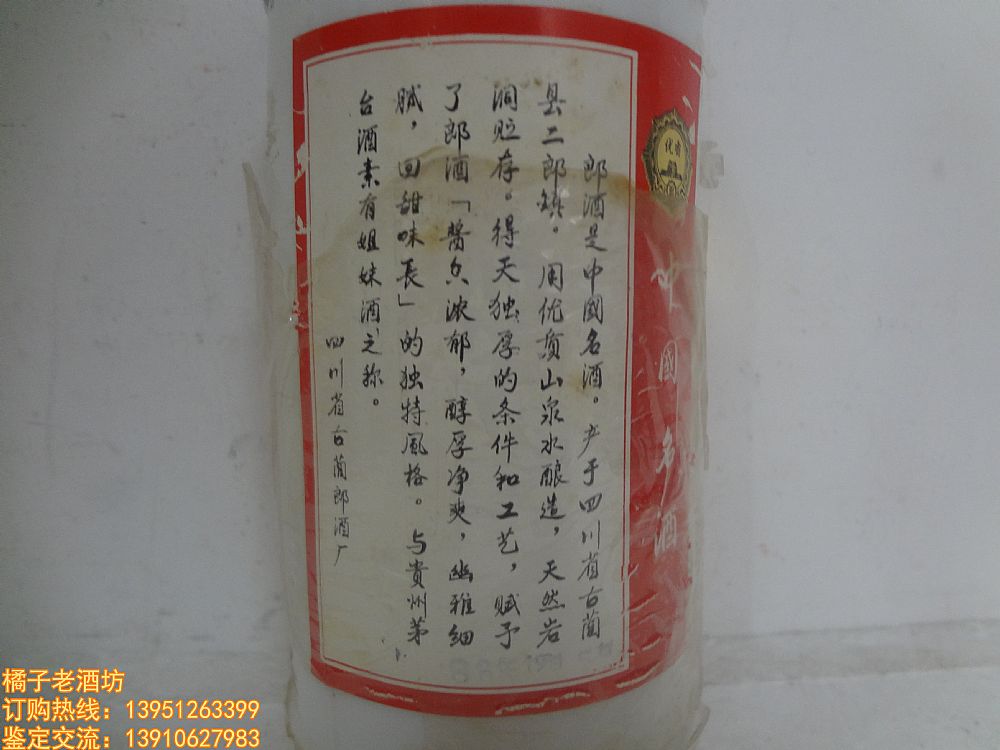 郎酒是中國名酒。产于四川省古蔺
县二郎镇。用优质山泉水酿造，天然岩
洞贮存。得天独厚的条件和工艺，赋予
了郎酒「醬香浓郁，醇厚净爽，幽雅细
腻，回甜味長」的独特風格。与貴州茅
台酒素有姐妹酒之称。
四川省古蔺郎酒厂
优質
中國名酒
橘子老酒坊
订购热线：13951263399
鉴定交流：13910627983